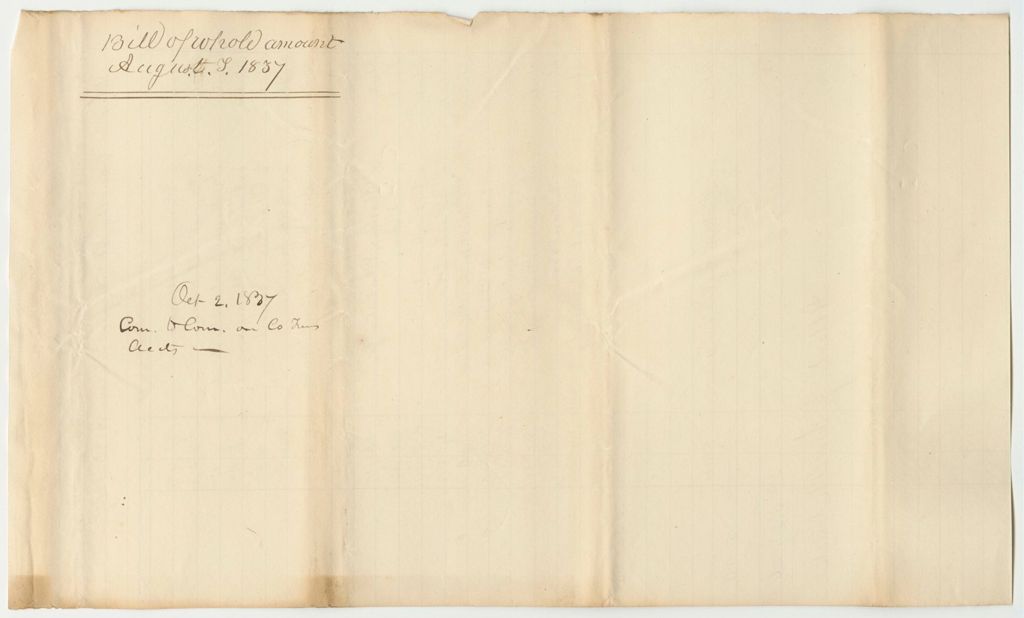 Bill of whold amount
August. T. 1837
Oct 2. 1837
Com. to Com. on Co Treas
Accts —